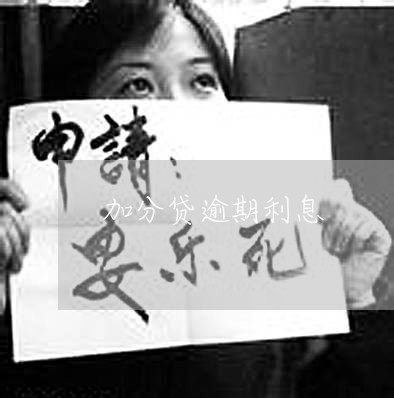 申請：
加分贷逾期利息
要乐死